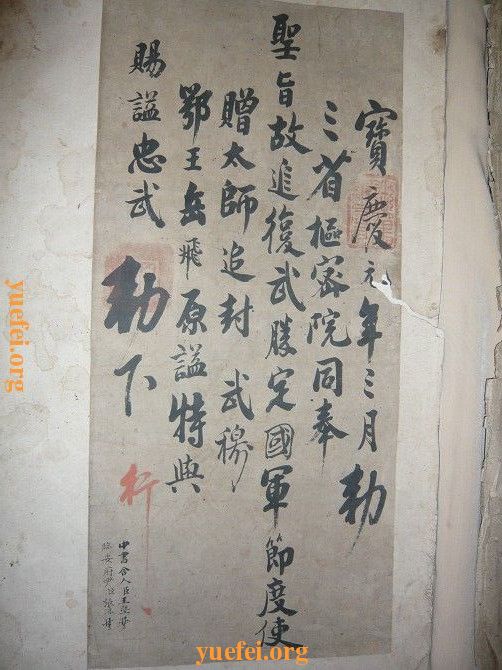 寶慶元年三月勅
三省樞密院同奉
聖旨故追復武勝定國軍節度使
贈太師追封 武穆
鄂王岳飛原謚特與
賜謚忠武
勅下
行
中書舍人臣王
臨安府
yuefei.org
yuefei.org